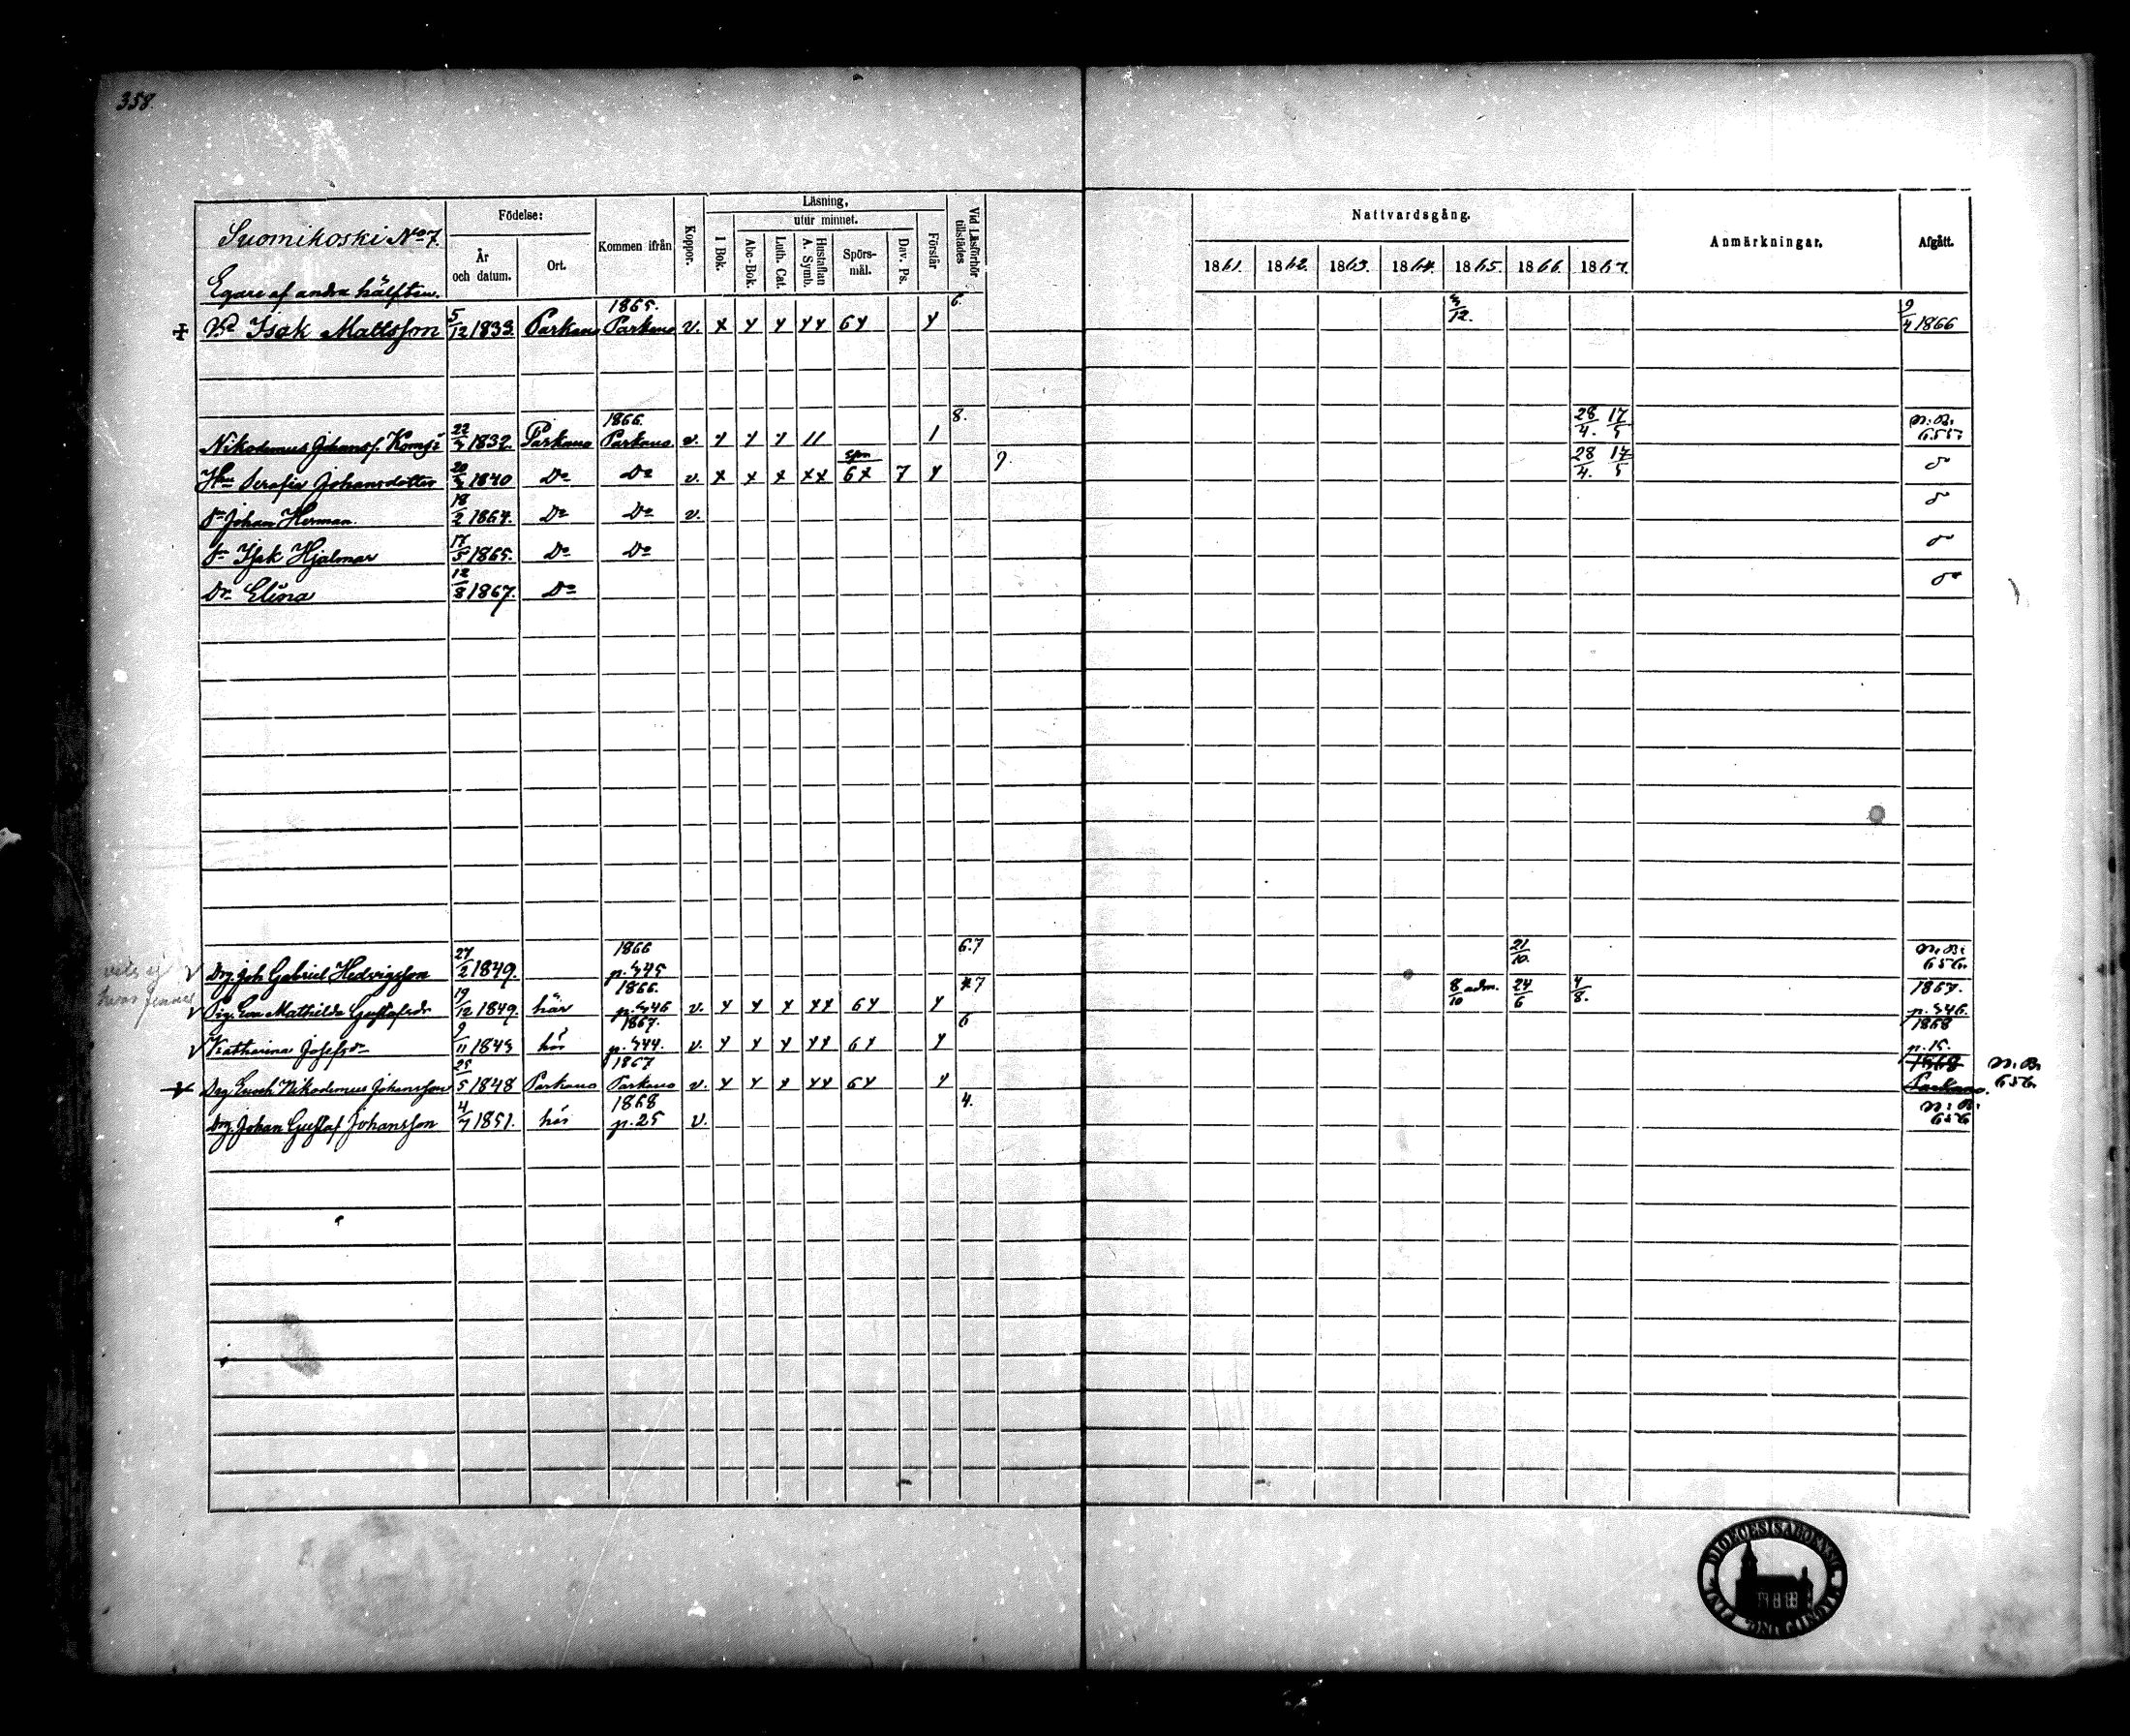 358.
Suomikoski No 7.
Egare af andra hälften.
Födelse:
År och datum.
Ort.
Kommen ifrån
Koppor.
Läsning,
I Bok.
utur minnet.
Abc-Bok.
Luth. Cat.
Hustaflan A. Symb.
Spörs-mål.
Dav. Ps.
Förstår
Vid Läsförhör tillstädes
Nattvardsgång.
1861. 1862. 1863. 1864. 1865. 1866. 1867.
Anmärkningar.
Afgått.
Isak Mattsson 5/12 1833 Parkano 1865. Parkano v. x y y yy 6y y 6. /12. 9/4 1866
Nikodemus Johanss. 1832. Parkano 1866. Parkano v. y y y 11 1 8. 28/4. 17/5 N.B. 655.
Hru Serafia Johansdotter 1840 Do Do v. x x x xx spn 6x 7 y 28/4. 17/5 do
Sn Johan Herman. 18/2 1864. Do Do v. do
Sn Isak Hjalmar 17/5 1865. Do Do do
Dr. Elina 12/8 1867. Do do
Drg. Joh Gabriel Hedvigsson 27/2 1849. 1866 p. 345 6.7 21/10. N.B. 656.
Pig. Eva Mathilda Gustafsdr 19/12 1849. här 1866. p. 346 v. y y x xx 6y y 7 8/10 adm. 24/6 4/8. 1867. p. 346.
Katharina Josefsdr 9/11 1843 här 1867. p. 344. v. y y y yy 6y y 6 1868 p. 15.
Drg Enoch Nikodemus Johansson 25/5 1848 Parkano 1867 Parkano v. y y x yy 6y y 1868 Parkano. N.B. 656.
Drg. Johan Gustaf Johansson 1851. här 1868 p. 25 v. 4. N.B. 656
DIOECESIS ABOENSIS